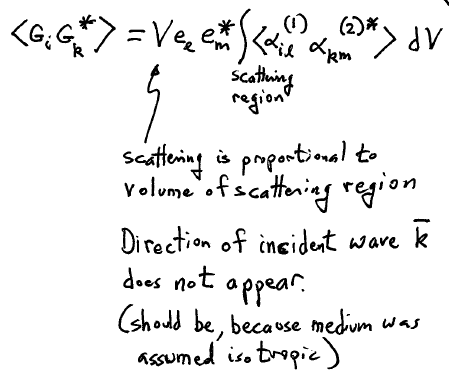 ⟨G_i G_k^*⟩ = V e_l e_m^* ∫⟨α_{il}^{(1)} α_{km}^{(2)*}⟩ dV
scattering
region
scattering is proportional to
volume of scattering region
Direction of incident wave k̄
does not appear.
(should be, because medium was
assumed isotropic)